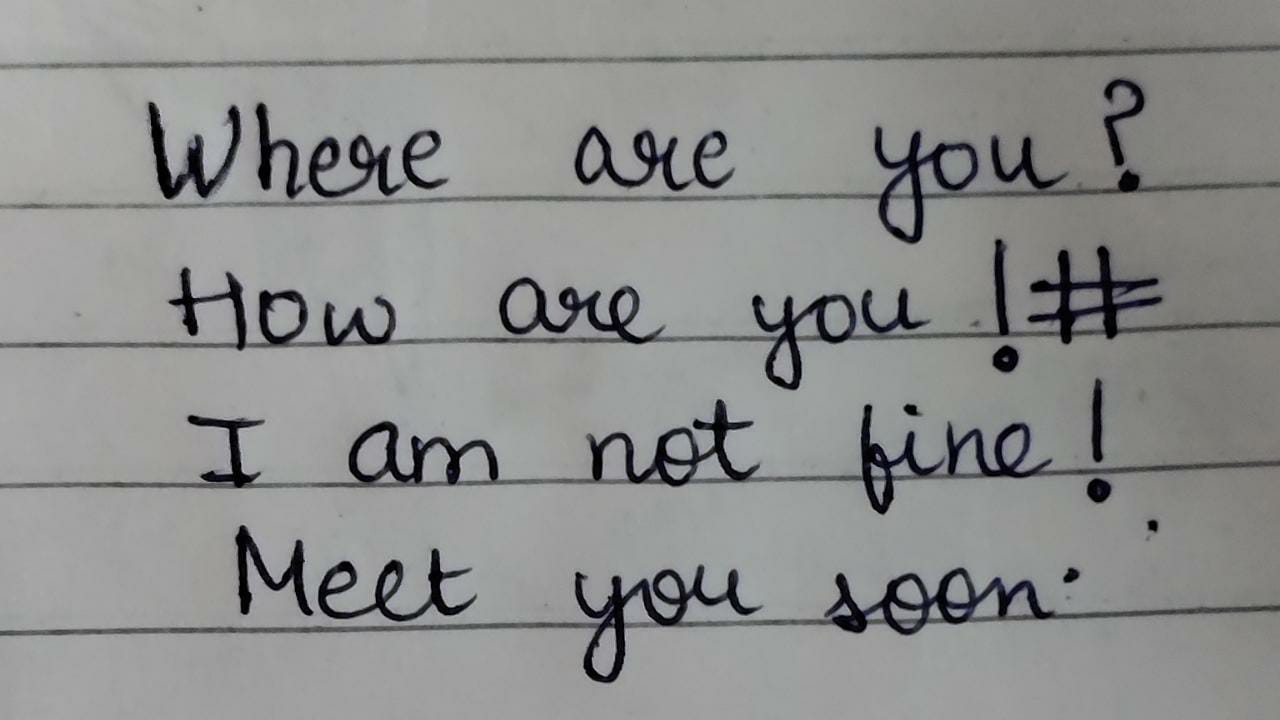 Where are you?
How are you!#
I am not fine!
Meet you soon.